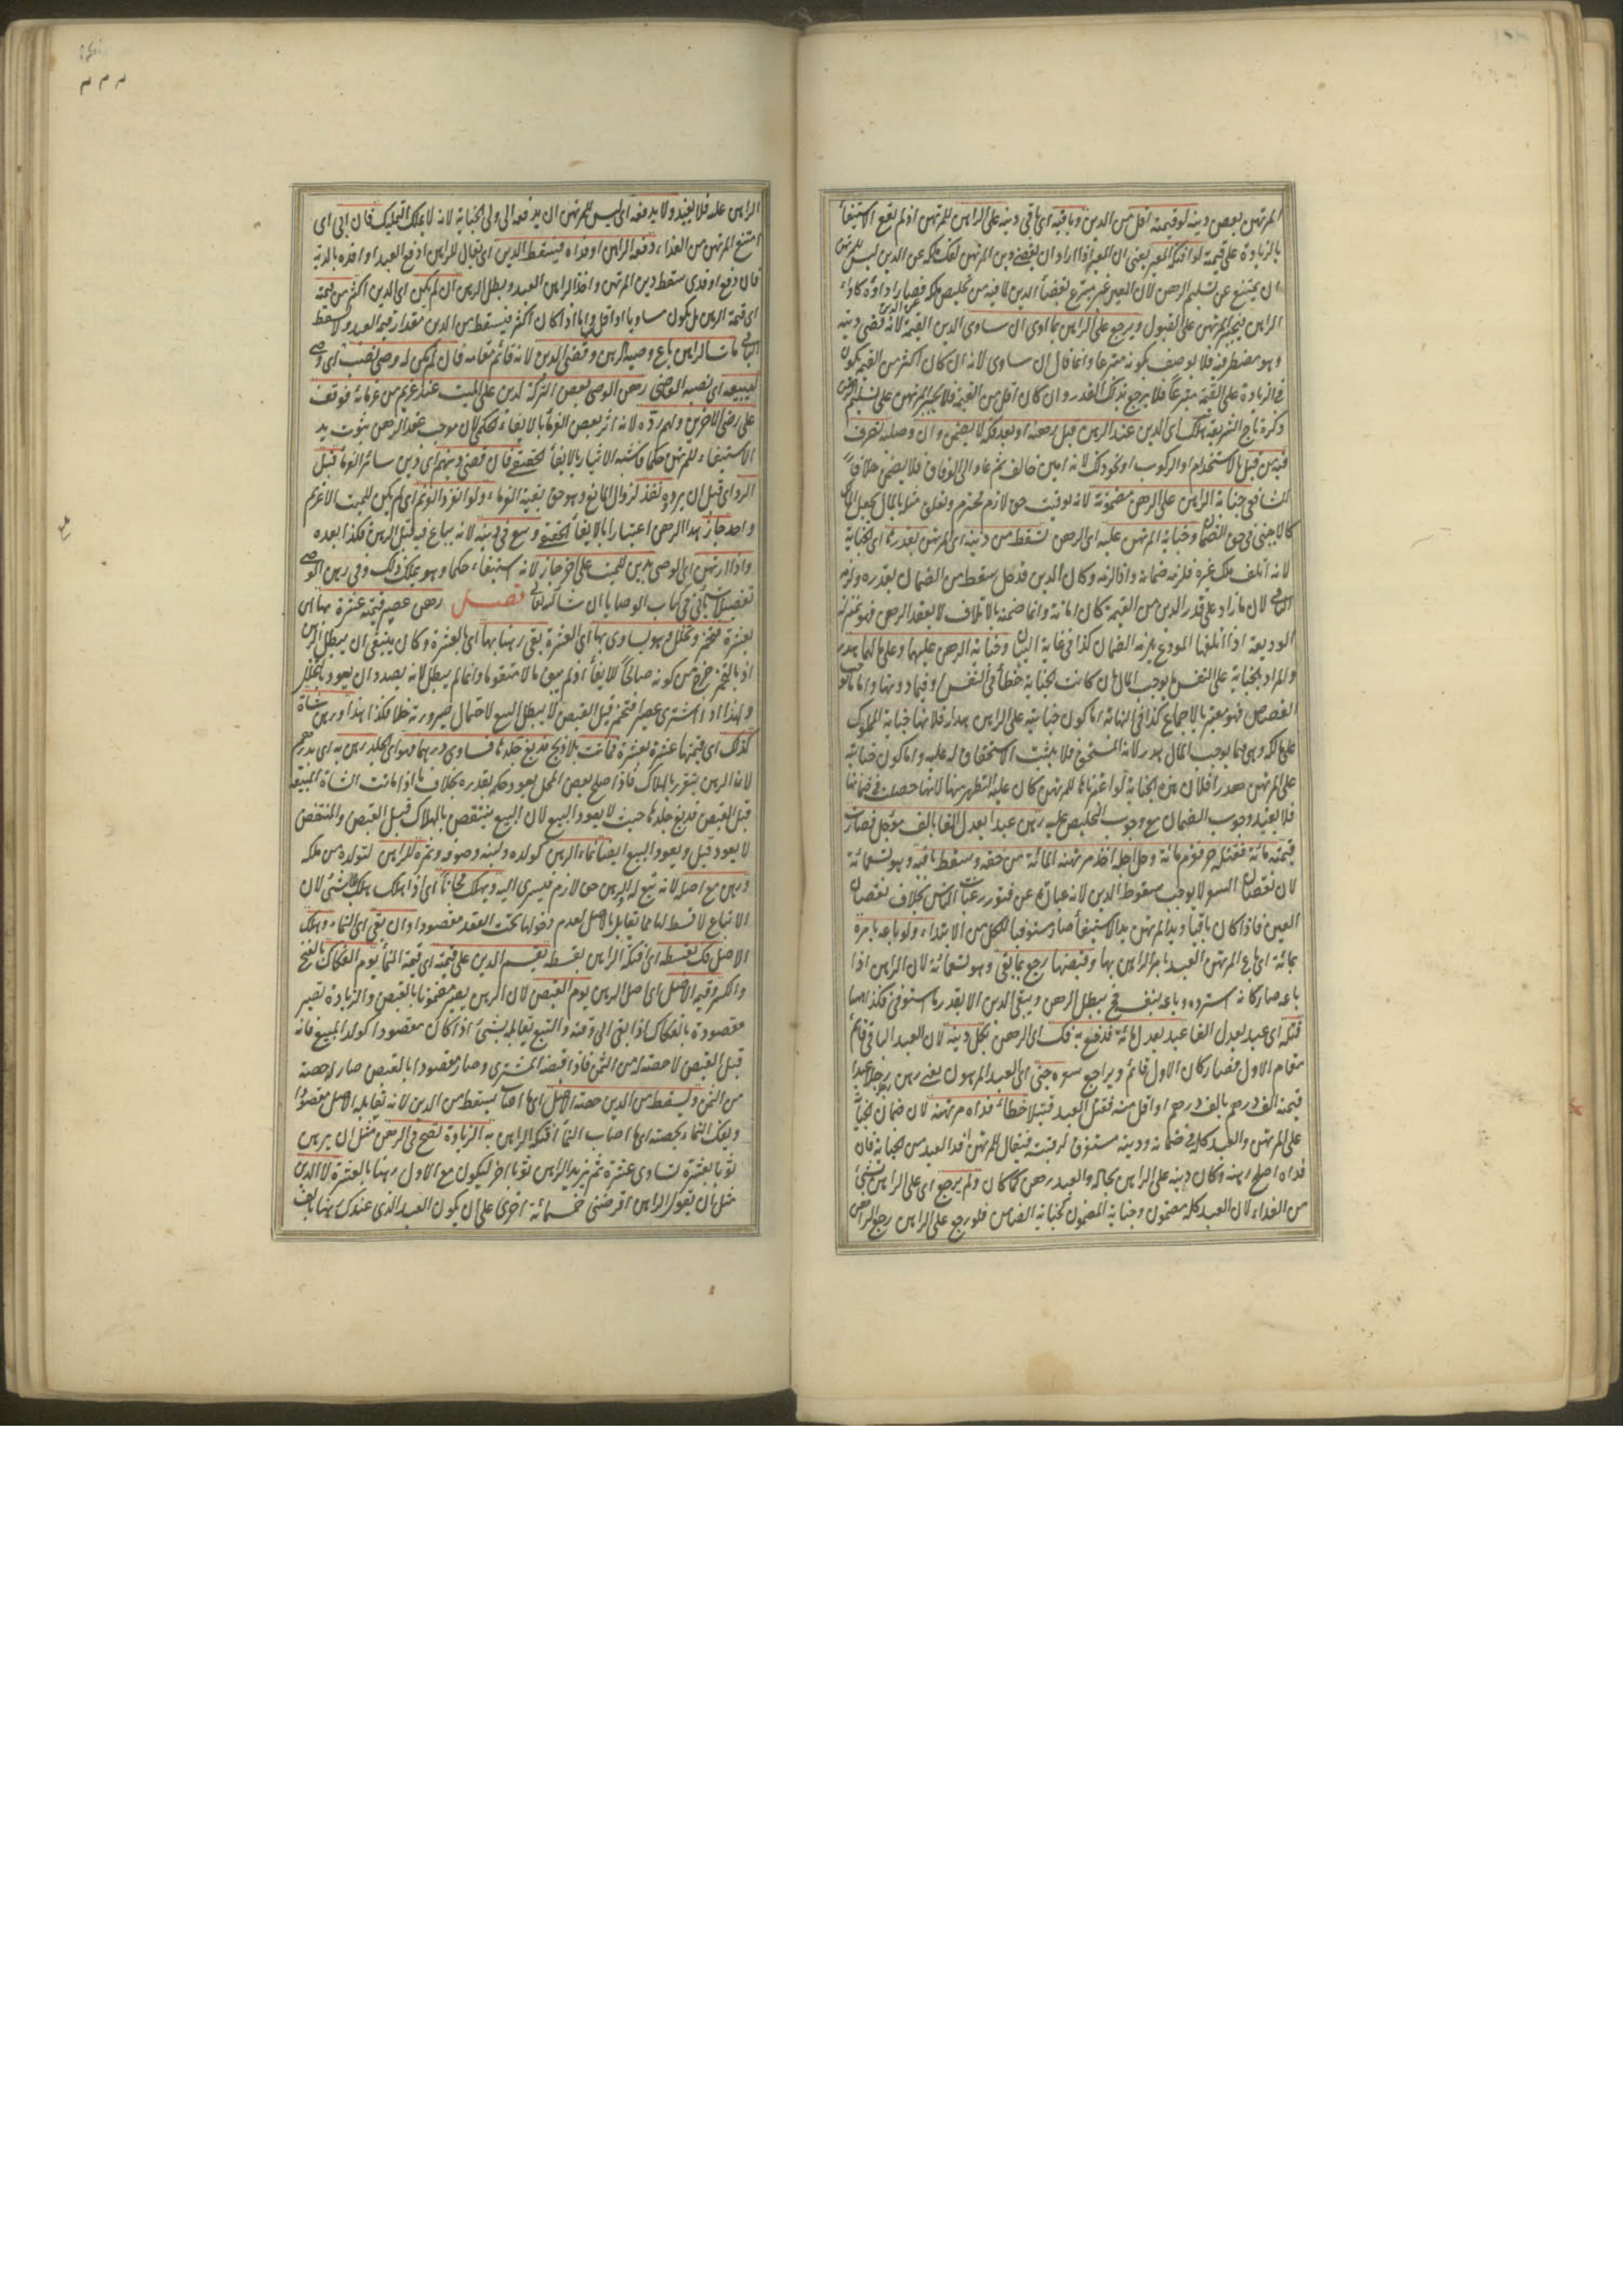 المرتهن بعض دينه لو قيمته اقل من الدين وباقيه اى باقى دينه على الراهن للمرتهن اذ لم يقع الاستيفاء
بالزيادة على قيمته لو افتكه المعير يعنى ان المعير اذا اراد ان يقضى دين المرتهن لفك ملكه عن الدين ليس للمرتهن
ان يمتنع عن تسليم الرهن لان المعير غير متبرع بقضاء الدين لما فيه من تخليص ملكه فصار اداؤه كاداء
الراهن فيجبر المرتهن على القبول ويرجع على الراهن بما ادى ان ساوى الدين القيمة لانه قضى دينه
وهو مضطر فيه فلا يوصف بكونه متبرعا وانما قال ان ساوى لانه ان كان اكثر من القيمة يكون
فى الزيادة على القيمة متبرعا فلا يرجع بذلك القدر وان كان اقل من القيمة فلا يجبر المرتهن على تسليم الرهن
ذكره تاج الشريعة هلك اى الدين عند الراهن قبل رهنه او بعد فكه لا يضمن وان وصلية تصرف
فيه من قبل بالاستخدام او الركوب او نحو ذلك لانه امين خالف ثم عاد الى الوفاق فلا يضمن خلافا
للشافعى جناية الراهن على الرهن مضمونة لانه تفويت حق لازم محترم وتعلق مثله بالمال يجعل المالك
كالاجنبى فى حق الضمان وجناية المرتهن عليه اى الرهن تسقط من دينه اى المرتهن بقدرها اى الجناية
لانه اتلف ملك غيره فلزمه ضمانه واذا لزمه وكان الدين قد حل سقط من الضمان بقدره ولزمه
الباقى لان ما زاد على قدر الدين من القيمة كان امانة وانما ضمنه بالاتلاف لا بعقد الرهن فهو بمنزلة
الوديعة اذا اتلفها المودع يلزمه الضمان كذا فى غاية البيان وجناية الرهن عليهما وعلى مالهما هدر
والمراد بالجناية على النفس ما يوجب المال بان كانت الجناية خطأ فى النفس او فيما دونها واما ما يوجب
القصاص فهو معتبر بالاجماع كذا فى النهاية اما كون جنايته على الراهن هدرا فلانها جناية المملوك
على مالكه وهى فيما يوجب المال هدر لانه المستحق فلا يثبت الاستحقاق له عليه واما كون جنايته
على المرتهن هدرا فلان هذه الجناية لو اعتبرناها للمرتهن كان عليه التطهير منها لانها حصلت فى ضمانه
فلا يفيد وجوب الضمان مع وجوب التخليص عليه رهن عبدا يعدل الفا بالف مؤجل فصارت
قيمته مائة فقتله حر فغرم مائة وحل اجله اخذ مرتهنه المائة من حقه وسقط باقيه وهو تسعمائة
لان نقصان السعر لا يوجب سقوط الدين لانه عبارة عن فتور رغبات الناس بخلاف نقصان
العين فاذا كان باقيا ويد المرتهن يد الاستيفاء صار مستوفيا للكل من الابتداء ولو باعه بامره
بمائة اى باع المرتهن العبد بامر الراهن بها وقبضها رجع بما بقى وهو تسعمائة لان الراهن اذا
باعه صار كانه استرده وباعه بنفسه فح يبطل الرهن ويبقى الدين الا بقدر ما استوفى فكذا هنا
قتله اى عبد يعدل الفا عبد يعدل مائة فدفع به فك اى الرهن بكل دينه لان العبد الباقى قائم
مقام الاول فصار كان الاول قائم وتراجع سعره جنى اى العبد المرهون يعنى رهن رجل عبدا
قيمته الف درهم بالف درهم او اقل منه فقتل العبد قتيلا خطاء فداه مرتهنه لان ضمان الجناية
على المرتهن والعبد كله فى ضمانه ودينه مستغرق لرقبته فيقال للمرتهن افد العبد من الجناية فان
فداه اصلح رهنه وكان دينه على الراهن بحاله والعبد رهن كما كان ولم يرجع اى على الراهن بشئ
من الفداء لان العبد كله مضمون وجناية المضمون كجناية الضامن فلو رجع على الراهن رجع الراهن
الراهن عليه فلا يفيد ولا يدفعه اى ليس للمرتهن ان يدفعه الى ولى الجناية لانه لا يملك التمليك فان ابى اى
امتنع المرتهن من الفداء دفعه الراهن او فداه فيسقط الدين اى يقال للراهن ادفع العبد او افده بالدية
فان دفع او فدى سقط دين المرتهن واخذ الراهن العبد وبطل الرهن ان لم يكن اى الدين اكثر من قيمته
اى قيمة الرهن بل يكون مساويا او اقل واما اذا كان اكثر فيسقط من الدين مقدار قيمة العبد ولا يسقط
الباقى مات الراهن باع وصيه الرهن وقضى الدين لانه قائم مقامه فان لم يكن له وصى نصب اى وصى
ليبيعه اى نصبه القاضى رهن الوصى بعض التركة لدين على الميت عند غريم من غرمائه توقف
على رضى الاخرين ولهم رده لانه اثر بعض الغرماء بالايفاء الحكمى لان موجب عقد الرهن ثبوت يد
الاستيفاء للمرتهن حكما فاشبه الايثار بالايفاء الحقيقى فان قضى دينهم اى دين سائر الغرماء قبل
الرد اى قبل ان يردوه نفذ لزوال المانع وهو حق بقية الغرماء ولو انفرد الغريم اى لم يكن للميت الا غريم
واحد جاز هذا الرهن اعتبارا بالايفاء الحقيقى وبيع فى دينه لانه يباع فيه قبل الرهن فكذا بعده
واذا ارتهن اى الوصى بدين للميت على اخر جاز لانه استيفاء حكما وهو يملك ذلك وفى رهن الوصى
تفصيلات تأتى فى كتاب الوصايا ان شاء الله تعالى فصل رهن عصير قيمته عشرة بها اى
بعشرة فتخمر وتخلل وهو يساوى بها اى العشرة بقى رهنا بها اى بالعشرة وكان ينبغى ان يبطل الرهن
اذ بالتخمر خرج من كونه صالحا للايفاء اذ لم يبق مالا متقوما وانما لم يبطل لانه بصدد ان يعود بالتخلل
ولهذا اذا اشترى عصيرا فتخمر قبل القبض لا يبطل البيع لاحتمال صيرورته خلا فكذا هذا ورهن شاة
كذلك اى قيمتها عشرة بعشرة فماتت بلا ذبح فدبغ جلدها فساوى درهما فهو اى الجلد رهن به اى بدرهم
لان الرهن يتقرر بالهلاك فاذا صلح بعض المحل يعود حكمه بقدره بخلاف ما اذا ماتت الشاة المبيعة
قبل القبض فدبغ جلدها حيث لا يعود البيع لان البيع ينتقض بالهلاك قبل القبض والمنتقض
لا يعود وقيل يعود البيع ايضا نماء الرهن كولده ولبنه وصوفه وثمره للراهن لتولده من ملكه
ورهن مع اصله لانه تبع له والرهن حق لازم فيسرى اليه ويهلك مجانا اى اذا هلك هلك بلا شئ لان
الاتباع لا قسط لها مما يقابل بالاصل لعدم دخولها تحت العقد مقصودا وان بقى اى النماء وهلك
الاصل فك بقسطه اى افتكه الراهن بقسطه يقسم الدين على قيمته اى قيمة النماء يوم الفكاك بالفتح
والكسر وقيمة الاصل اى اصل الرهن يوم القبض لان الرهن يصير مضمونا بالقبض والزيادة تصير
مقصودة بالفكاك اذا بقى الى وقته والتبع يقابله شئ اذا كان مقصودا كولد المبيع فانه
قبل القبض لا حصة له من الثمن فاذا قبضه المشترى وصار مقصودا بالقبض صار له حصة
من الثمن ويسقط من الدين حصة الاصل اى ما اصاب الاصل يسقط من الدين لانه يقابله الاصل مقصودا
ويفك النماء بحصته اى ما اصاب النماء افتكه الراهن به الزيادة تصح فى الرهن مثل ان يرهن
ثوبا بعشرة يساوى عشرة ثم يزيد الراهن ثوبا اخر ليكون مع الاول رهنا بالعشرة لا الدين
مثل ان يقول الراهن اقرضنى خمسمائة اخرى على ان يكون العبد الذى عندك رهنا بالف